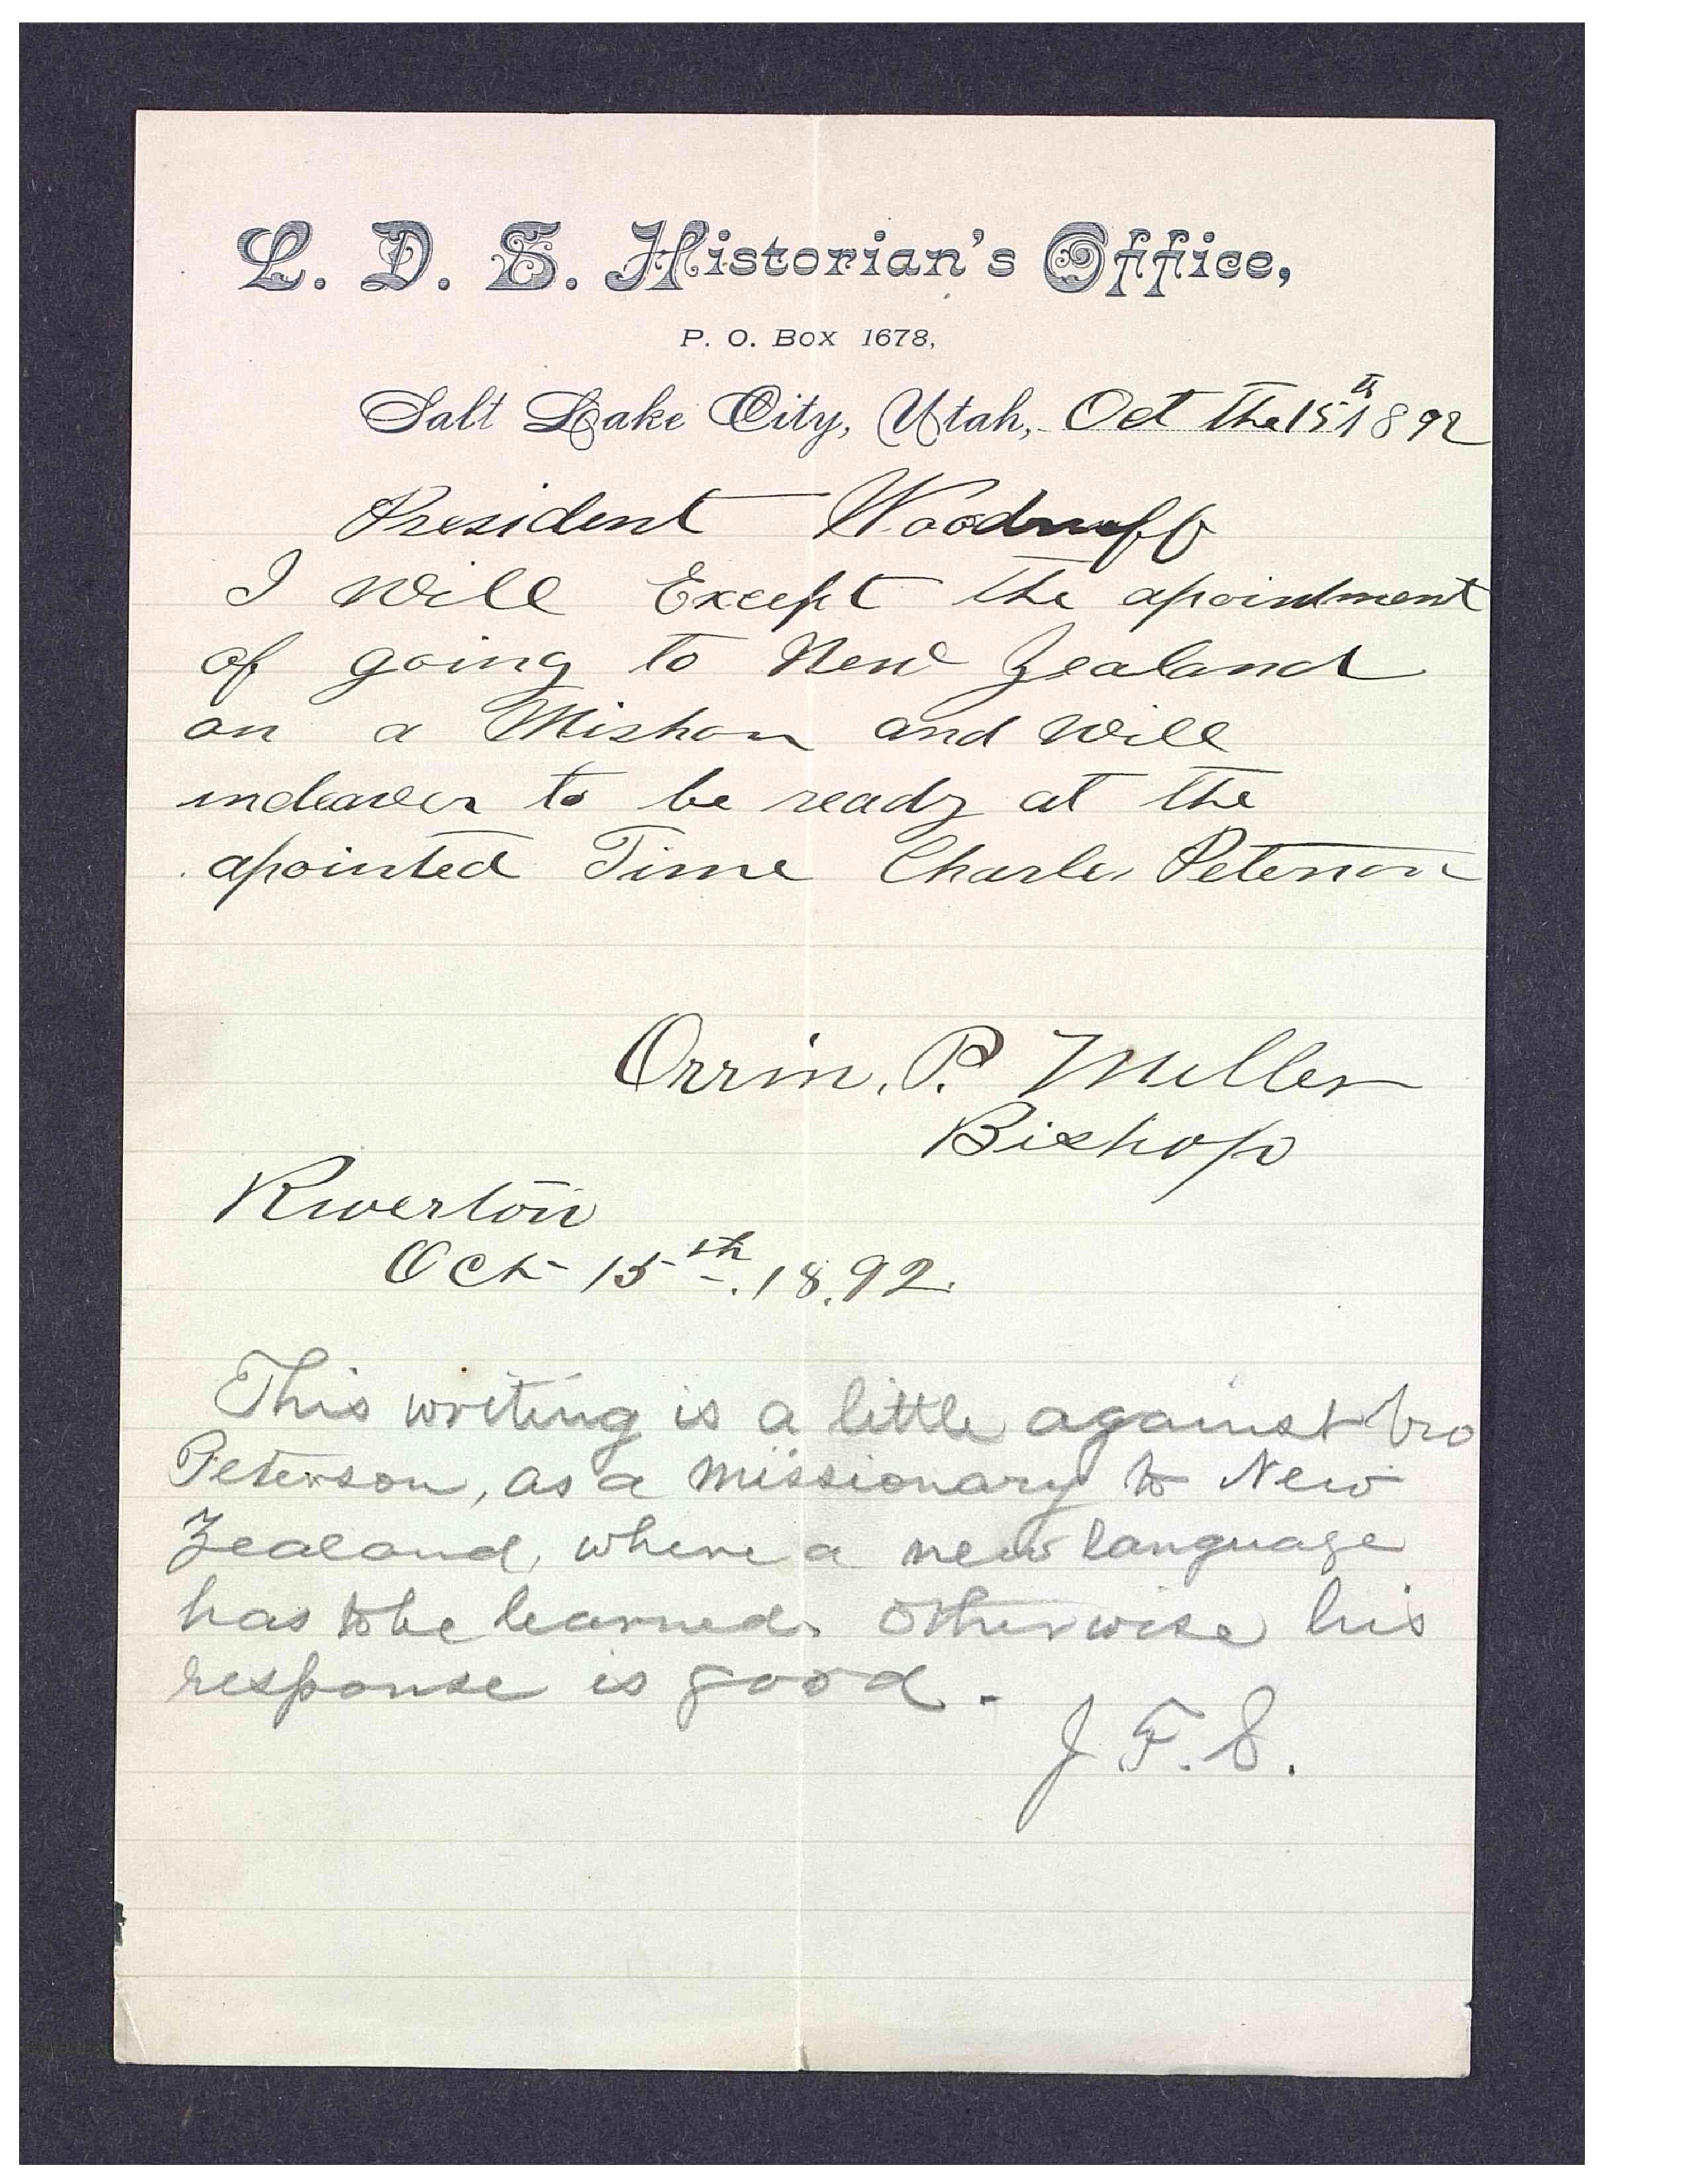 L. D. S. Historian's Office,
P. O. Box 1678,
Salt Lake City, Utah, Oct the 15th 1892
President Woodruff
I will Except the apointment
of going to New Zealand
on a Mishon and will
indeaver to be ready at the
apointed Time Charles Peterson
Orrin. P. Miller
Bishop
Riverton
Oct 15th. 1892.
This writing is a little against bro
Peterson, as a missionary to New
Zealand, where a new language
has to be learned. Otherwise his
response is good.
J. F. S.